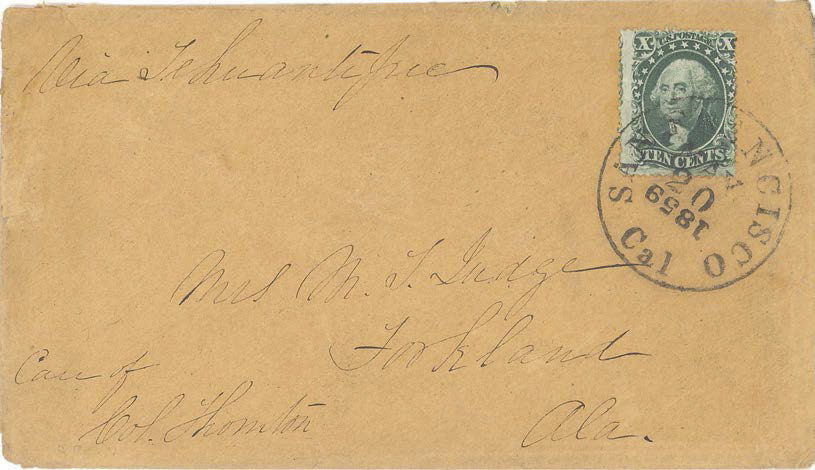 Via Tehuantepec
X U.S. POSTAGE X
TEN CENTS
SAN FRANCISCO
20
1859
Cal
Mrs M. T. Judge
Forkland
Care of
Col. Thornton
Ala.